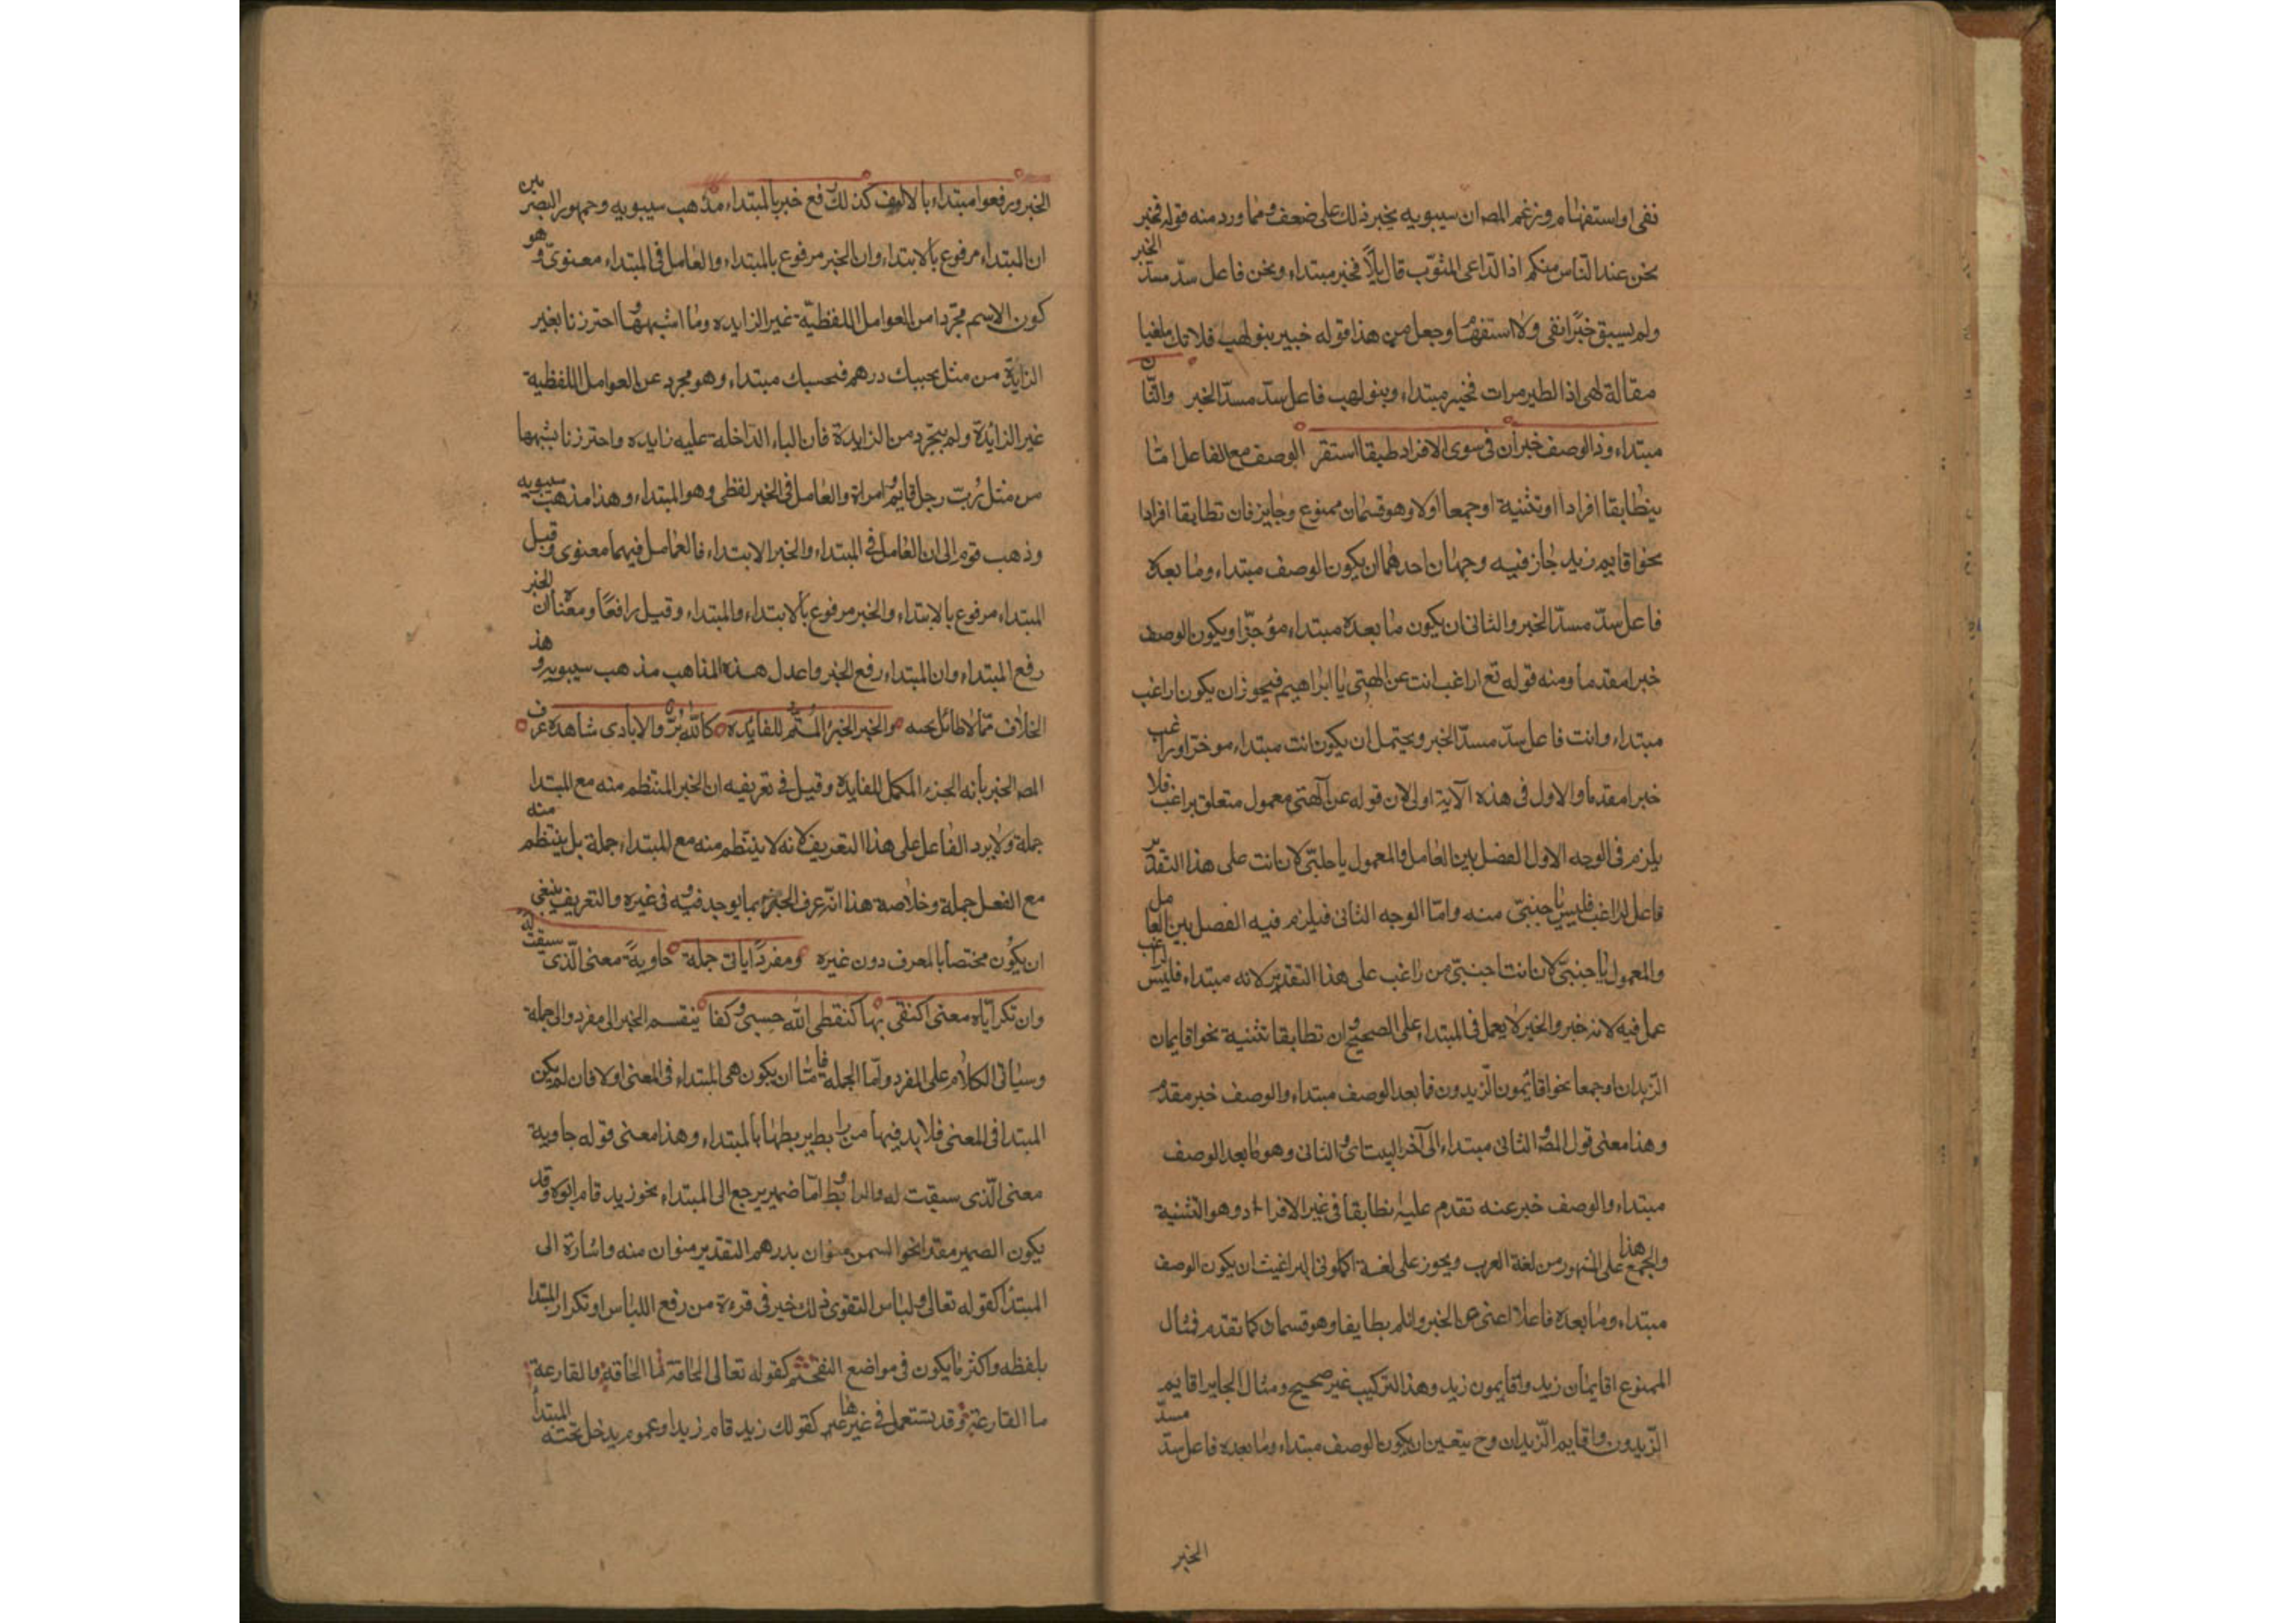 نفى او استفهام وزعم المص ان سيبويه يجيز ذلك على ضعف ومما ورد منه قوله فخير
نحن عند الناس منكم اذا الداعى المثوّب قال يالا فخير مبتداء ونحن فاعل سدّ مسدّ الخبر
ولم يسبق خبرًا نفى ولا استفهام وجعل من هذا قوله خبير بنو لهب فلا تك ملغيا
مقالة لهبى اذا الطير مرات فخبير مبتداء وبنو لهب فاعل سدّ مسدّ الخبر والثان
مبتداء وذا الوصف خبر ان فى سوى الافراد طبقا استقر الوصف مع الفاعل امّا
يتطابقا افرادا او تثنية او جمعا اولا وهو قسمان ممنوع وجايز فان تطابقا افرادا
نحو اقايم زيد جاز فيه وجهان احدهما ان يكون الوصف مبتداء وما بعده
فاعل سدّ مسدّ الخبر والثانى ان يكون ما بعده مبتداء مؤخّرا ويكون الوصف
خبرا مقدما ومنه قوله تع اراغب انت عن الهتى يا ابراهيم فيجوز ان يكون اراغب
مبتداء وانت فاعل سدّ مسدّ الخبر ويحتمل ان يكون انت مبتداء موخرا وراغب
خبرا مقدما والاول فى هذه الآية اولى لان قوله عن آلهتى معمول متعلق براغب فلا
يلزم فى الوجه الاول الفصل بين العامل والمعمول باجنبّى لان انت على هذا التقدير
فاعل لراغب فليس باجنبىّ منه وامّا الوجه الثانى فيلزم فيه الفصل بين العامل
والمعمول باجنبىّ لان انت اجنبىّ من راغب على هذا التقدير لانه مبتداء فليس لراغب
عمل فيه لانه خبر والخبر لا يعمل فى المبتداء على الصحيح وان تطابقا تثنية نحو اقايمان
الزيدان او جمعا نحو اقائمون الزيدون فما بعد الوصف مبتداء والوصف خبر مقدم
وهذا معنى قول المص والثانى مبتداء الى آخر البيت اى والثانى وهو ما بعد الوصف
مبتداء والوصف خبر عنه تقدم عليه ان تطابقا فى غير الافراد وهو التثنية
والجمع هذا على المشهور من لغة العرب ويجوز على لغة اكلونى البراغيث ان يكون الوصف
مبتداء وما بعده فاعلا اغنى عن الخبر وان لم يطابقا وهو قسمان كما تقدم فمثال
الممنوع اقايمان زيد واقايمون زيد وهذا التركيب غير صحيح ومثال الجايز اقايم
الزيدون واقايم الزيدان وح يتعين ان يكون الوصف مبتداء وما بعده فاعل سدّ مسدّ
الخبر
الخبر ورفعوا مبتداء بالابتدا كذلك رفع خبر بالمبتداء مذهب سيبويه وجمهور البصريين
ان المبتداء مرفوع بالابتداء وان الخبر مرفوع بالمبتداء والعامل فى المبتداء معنوىّ وهو
كون الاسم مجردا من العوامل اللفظيّة غير الزايده وما اشبهها واحترزنا بغير
الزايدة من مثل بحسبك درهم فبحسبك مبتداء وهو مجرد عن العوامل اللفظية
غير الزائدة ولم يتجرد من الزايدة فان الباء الداخلة عليه زايده واحترزنا بشبهها
من مثل رُبّ رجل قايم وامراة والعامل فى الخبر لفظى وهو المبتداء وهذا مذهب سيبويه
وذهب قوم الى ان العامل فى المبتداء والخبر الابتداء فالعامل فيهما معنوى وقيل
المبتداء مرفوع بالابتداء والخبر مرفوع بالابتداء والمبتداء وقيل رافعا ومعناه ان الخبر
رفع المبتداء وان المبتداء رفع الخبر واعدل هذه المذاهب مذهب سيبويه وهذ
الخلاف ممّا لا طائل تحته والخبر الجزؤ المُتمّ للفايده كاللّه بَرّ والايادى شاهدة عرف
المص الخبر بأنه الجزء المكمل للفايدة وقيل فى تعريفه ان الخبر المنتظم منه مع المبتدا
جملة ولا يرد الفاعل على هذا التعريف لانه لا ينتظم منه مع المبتداء جملة بل ينتظم منه
مع الفعل جملة وخلاصه هذا انّه عرف الخبر بما يوجد فيه وفى غيره والتعريف ينبغى
ان يكون مختصا بالمعرف دون غيره ومفردًا ياتى جملة حاويةً معنى الّذى سيقت له
وان تكن ايّاه معنى اكتفى بها كنطقى اللّه حسبى وكفا ينقسم الخبر الى مفرد والى جملة
وسياتى الكلام على المفرد وامّا الجمله فاما ان يكون هى المبتداء فى المعنى او لا فان لم يكن
المبتدا فى المعنى فلا بد فيها من رابط يربطها بالمبتداء وهذا معنى قوله حاوية
معنى الّذى سيقت له والرابط امّا ضمير يرجع الى المبتداء نحو زيد قام ابوه وقد
يكون الضمير مقدرا نحو السمن منوان بدرهم التقدير منوان منه واشارة الى
المبتدا كقوله تعالى ولباس التقوى ذلك خير فى قرءة من رفع اللباس او تكرار المبتدا
بلفظه واكثر ما يكون فى مواضع التفخيم كقوله تعالى الحاقة ما الحاقة والقارعة
ما القارعة وقد يستعمل فى غيرها كقولك زيد قام زيد او عموم يدخل تحته المبتدأ